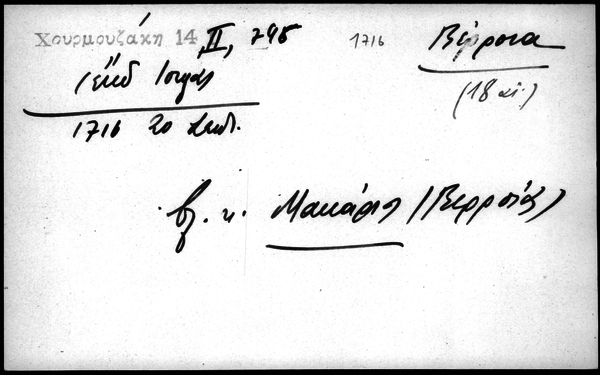 Χουρμουζάκη 14, II, 795 1716 Βέρροια
(18 αἰ.)
1716 20 Σεπτ.
βλ. κ. Μακάριος (Βερροίας)